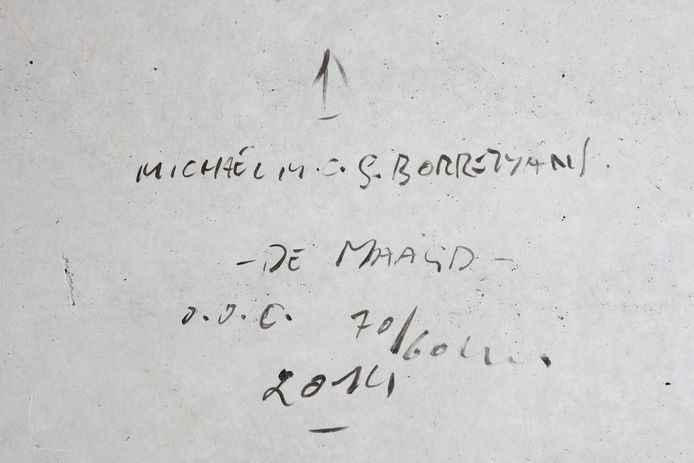 MICHAËL M.C.G. BORREMANS.
- DE MAAGD -
O.O.C. 70/60cm.
2014